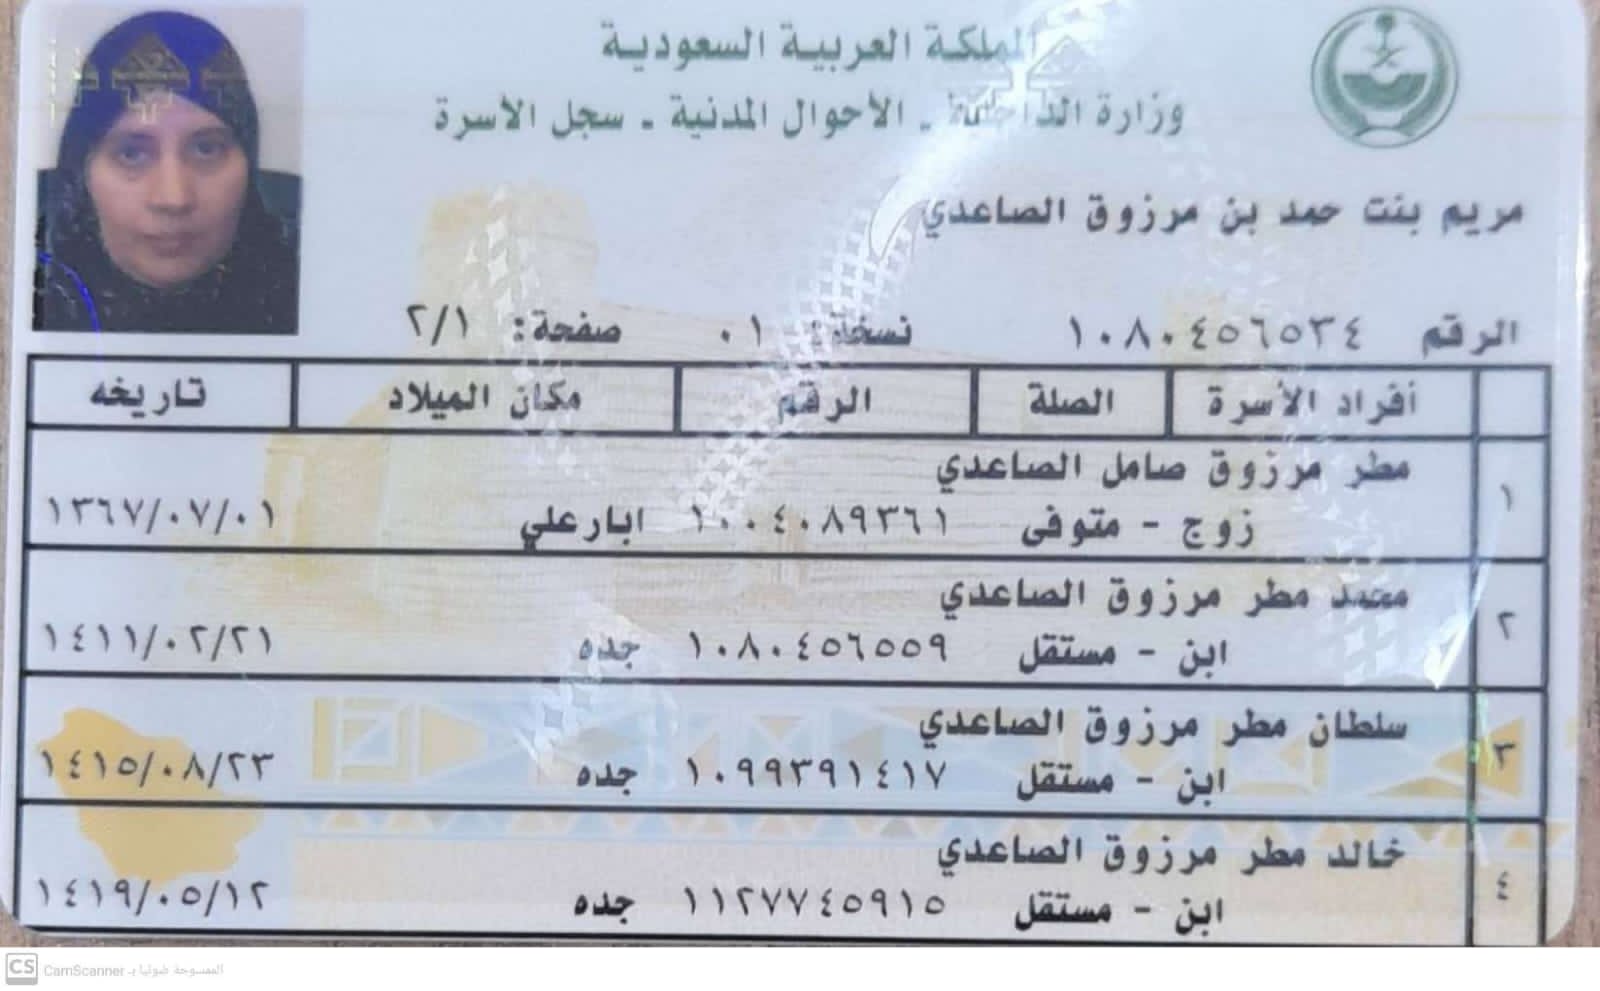 المملكة العربية السعودية
وزارة الداخلية - الأحوال المدنية - سجل الأسرة
مريم بنت حمد بن مرزوق الصاعدي
الرقم ١٠٨٠٤٥٦٥٣٤ نسخة: ٠١ صفحة: ٢/١
أفراد الأسرة الصلة الرقم مكان الميلاد تاريخه
١ مطر مرزوق صامل الصاعدي
زوج - متوفى ١٠٠٤٠٨٩٣٦١ ابارعلي ١٣٦٧/٠٧/٠١
٢ محمد مطر مرزوق الصاعدي
ابن - مستقل ١٠٨٠٤٥٦٥٥٩ جده ١٤١١/٠٢/٢١
٣ سلطان مطر مرزوق الصاعدي
ابن - مستقل ١٠٩٩٣٩١٤١٧ جده ١٤١٥/٠٨/٢٣
٤ خالد مطر مرزوق الصاعدي
ابن - مستقل ١١٢٧٧٤٥٩١٥ جده ١٤١٩/٠٥/١٢
CS الممسوحة ضوئيا بـ CamScanner